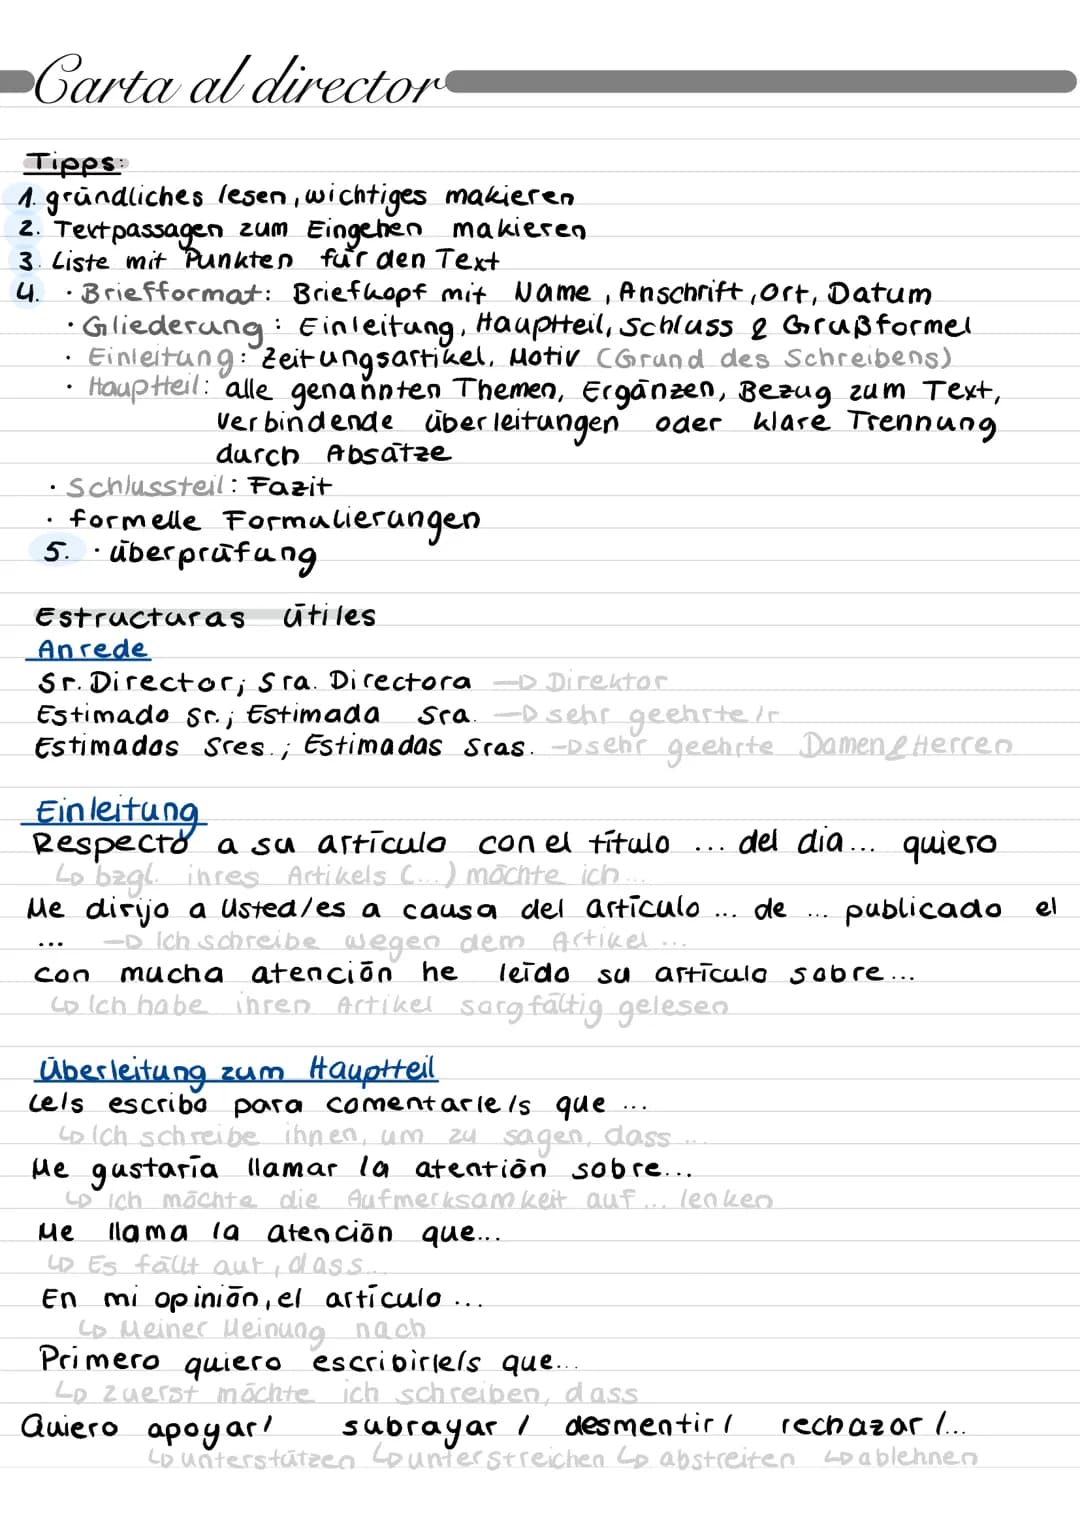 Carta al director
Tipps:
1. gründliches lesen, wichtiges makieren
2. Textpassagen zum Eingehen makieren
3. Liste mit Punkten für den Text
4. · Briefformat: Briefkopf mit Name, Anschrift, Ort, Datum
· Gliederung: Einleitung, Hauptteil, Schluss & Grußformel
· Einleitung: Zeitungsartikel, Motiv (Grund des Schreibens)
· Hauptteil: alle genannten Themen, Ergänzen, Bezug zum Text,
verbindende überleitungen oder klare Trennung
durch Absätze
· Schlussteil: Fazit
· formelle Formulierungen
5. · überprüfung
Estructuras útiles
Anrede
Sr. Director; Sra. Directora → Direktor
Estimado Sr.; Estimada Sra. → sehr geehrte/r
Estimados Sres.; Estimadas Sras. → sehr geehrte Damen & Herren
Einleitung
Respecto a su artículo con el título ... del dia... quiero
↳ bzgl. ihres Artikels (...) möchte ich ...
Me dirijo a Usted/es a causa del artículo ... de ... publicado el
... → Ich schreibe wegen dem Artikel ...
con mucha atención he leído su artículo sobre...
↳ Ich habe ihren Artikel sorgfältig gelesen
Überleitung zum Hauptteil
Le/s escribo para comentarle/s que ...
↳ Ich schreibe ihnen, um zu sagen, dass ...
Me gustaría llamar la atentión sobre...
↳ Ich möchte die Aufmerksamkeit auf ... lenken
Me llama la atención que...
↳ Es fällt auf, dass...
En mi opinión, el artículo ...
↳ Meiner Meinung nach
Primero quiero escribirle/s que...
↳ zuerst möchte ich schreiben, dass
Quiero apoyar/ subrayar / desmentir/ rechazar /...
↳ unterstützen ↳ unterstreichen ↳ abstreiten ↳ ablehnen